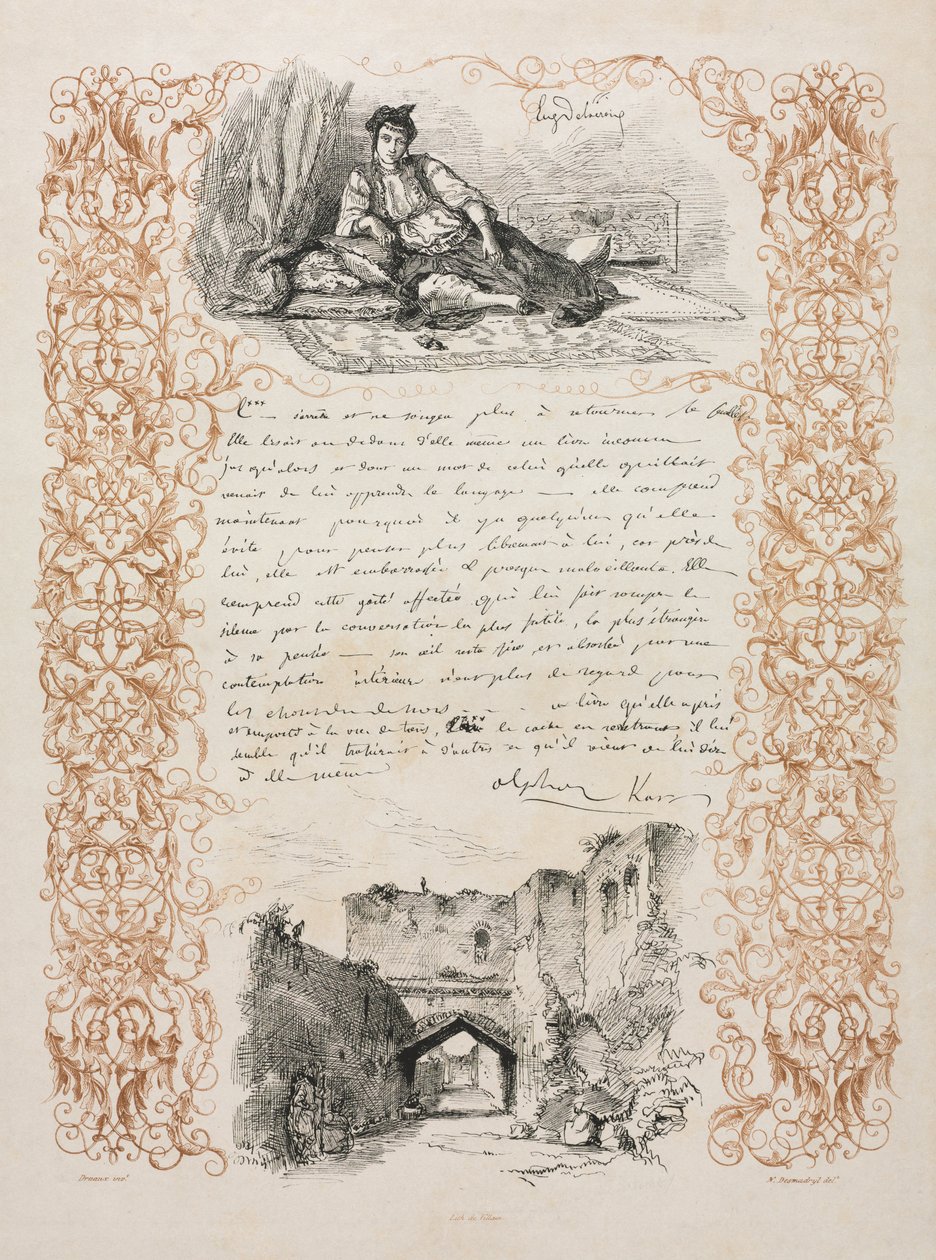 Eug Delacroix
C*** s'arrête et ne songea plus à retourner le
Elle lisait au dedans d'elle même un livre inconnu
jusqu'alors et dont un mot de celui qu'elle
venait de lui apprendre le langage — elle comprend
maintenant pourquoi il y a quelqu'un qu'elle
évite pour penser plus librement à lui, car près de
lui, elle est embarrassée & presque malveillante. Elle
comprend cette gaité affectée qui lui fait rompre le
silence par la conversation la plus futile, la plus étrangère
à sa pensée — son œil reste fixe et absorbé par une
contemplation intérieure n'ont plus de regard pour
les de hors - - - ce livre qu'elle a pris
et emporté à la vue de tous, le cache en rentrant il lui
semble qu'il trahirait à d'autres ce qu'il vient de lui dire
à elle même
Alphonse Karr
Druaux invt
N. Desmadryl delt
Lith de Villain